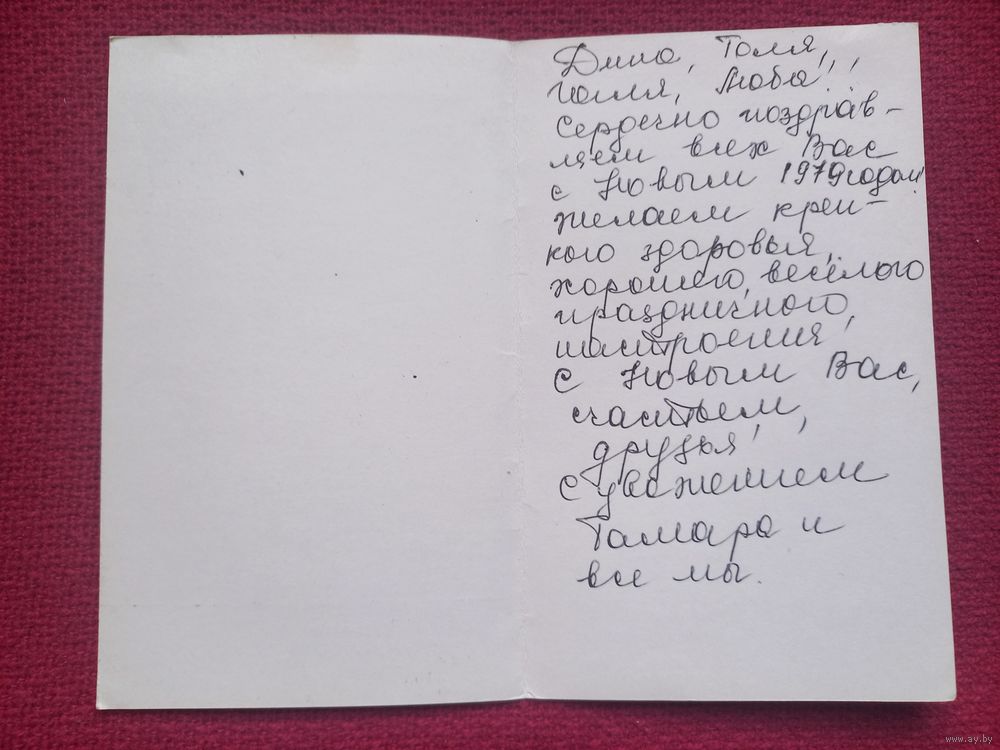 Дина, Толя,
Юля, Люба!
Сердечно поздрав-
ляем всех Вас
с Новым 1979 годом!
желаем креп-
кого здоровья,
хорошего, весёлого
праздничного,
настроения!
С Новым Вас,
счастьем,
друзья!
С уважением
Тамара и
все мы.
www.ay.by